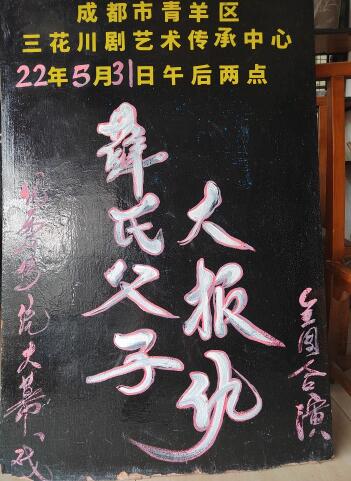 成都市青羊区
三花川剧艺术传承中心
22年5月31日午后两点
薛氏父子
大报仇
传统大幕戏
全团合演